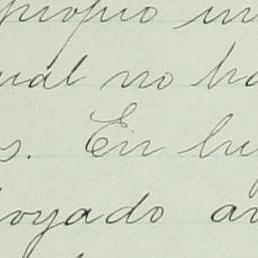 propio in
ual no ha
s. En lu
oyado a